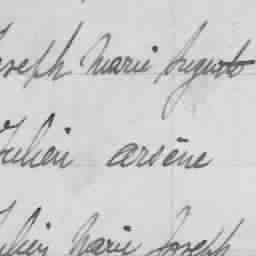 Joseph Marie Auguste
Julien arsène
Julien Marie Joseph